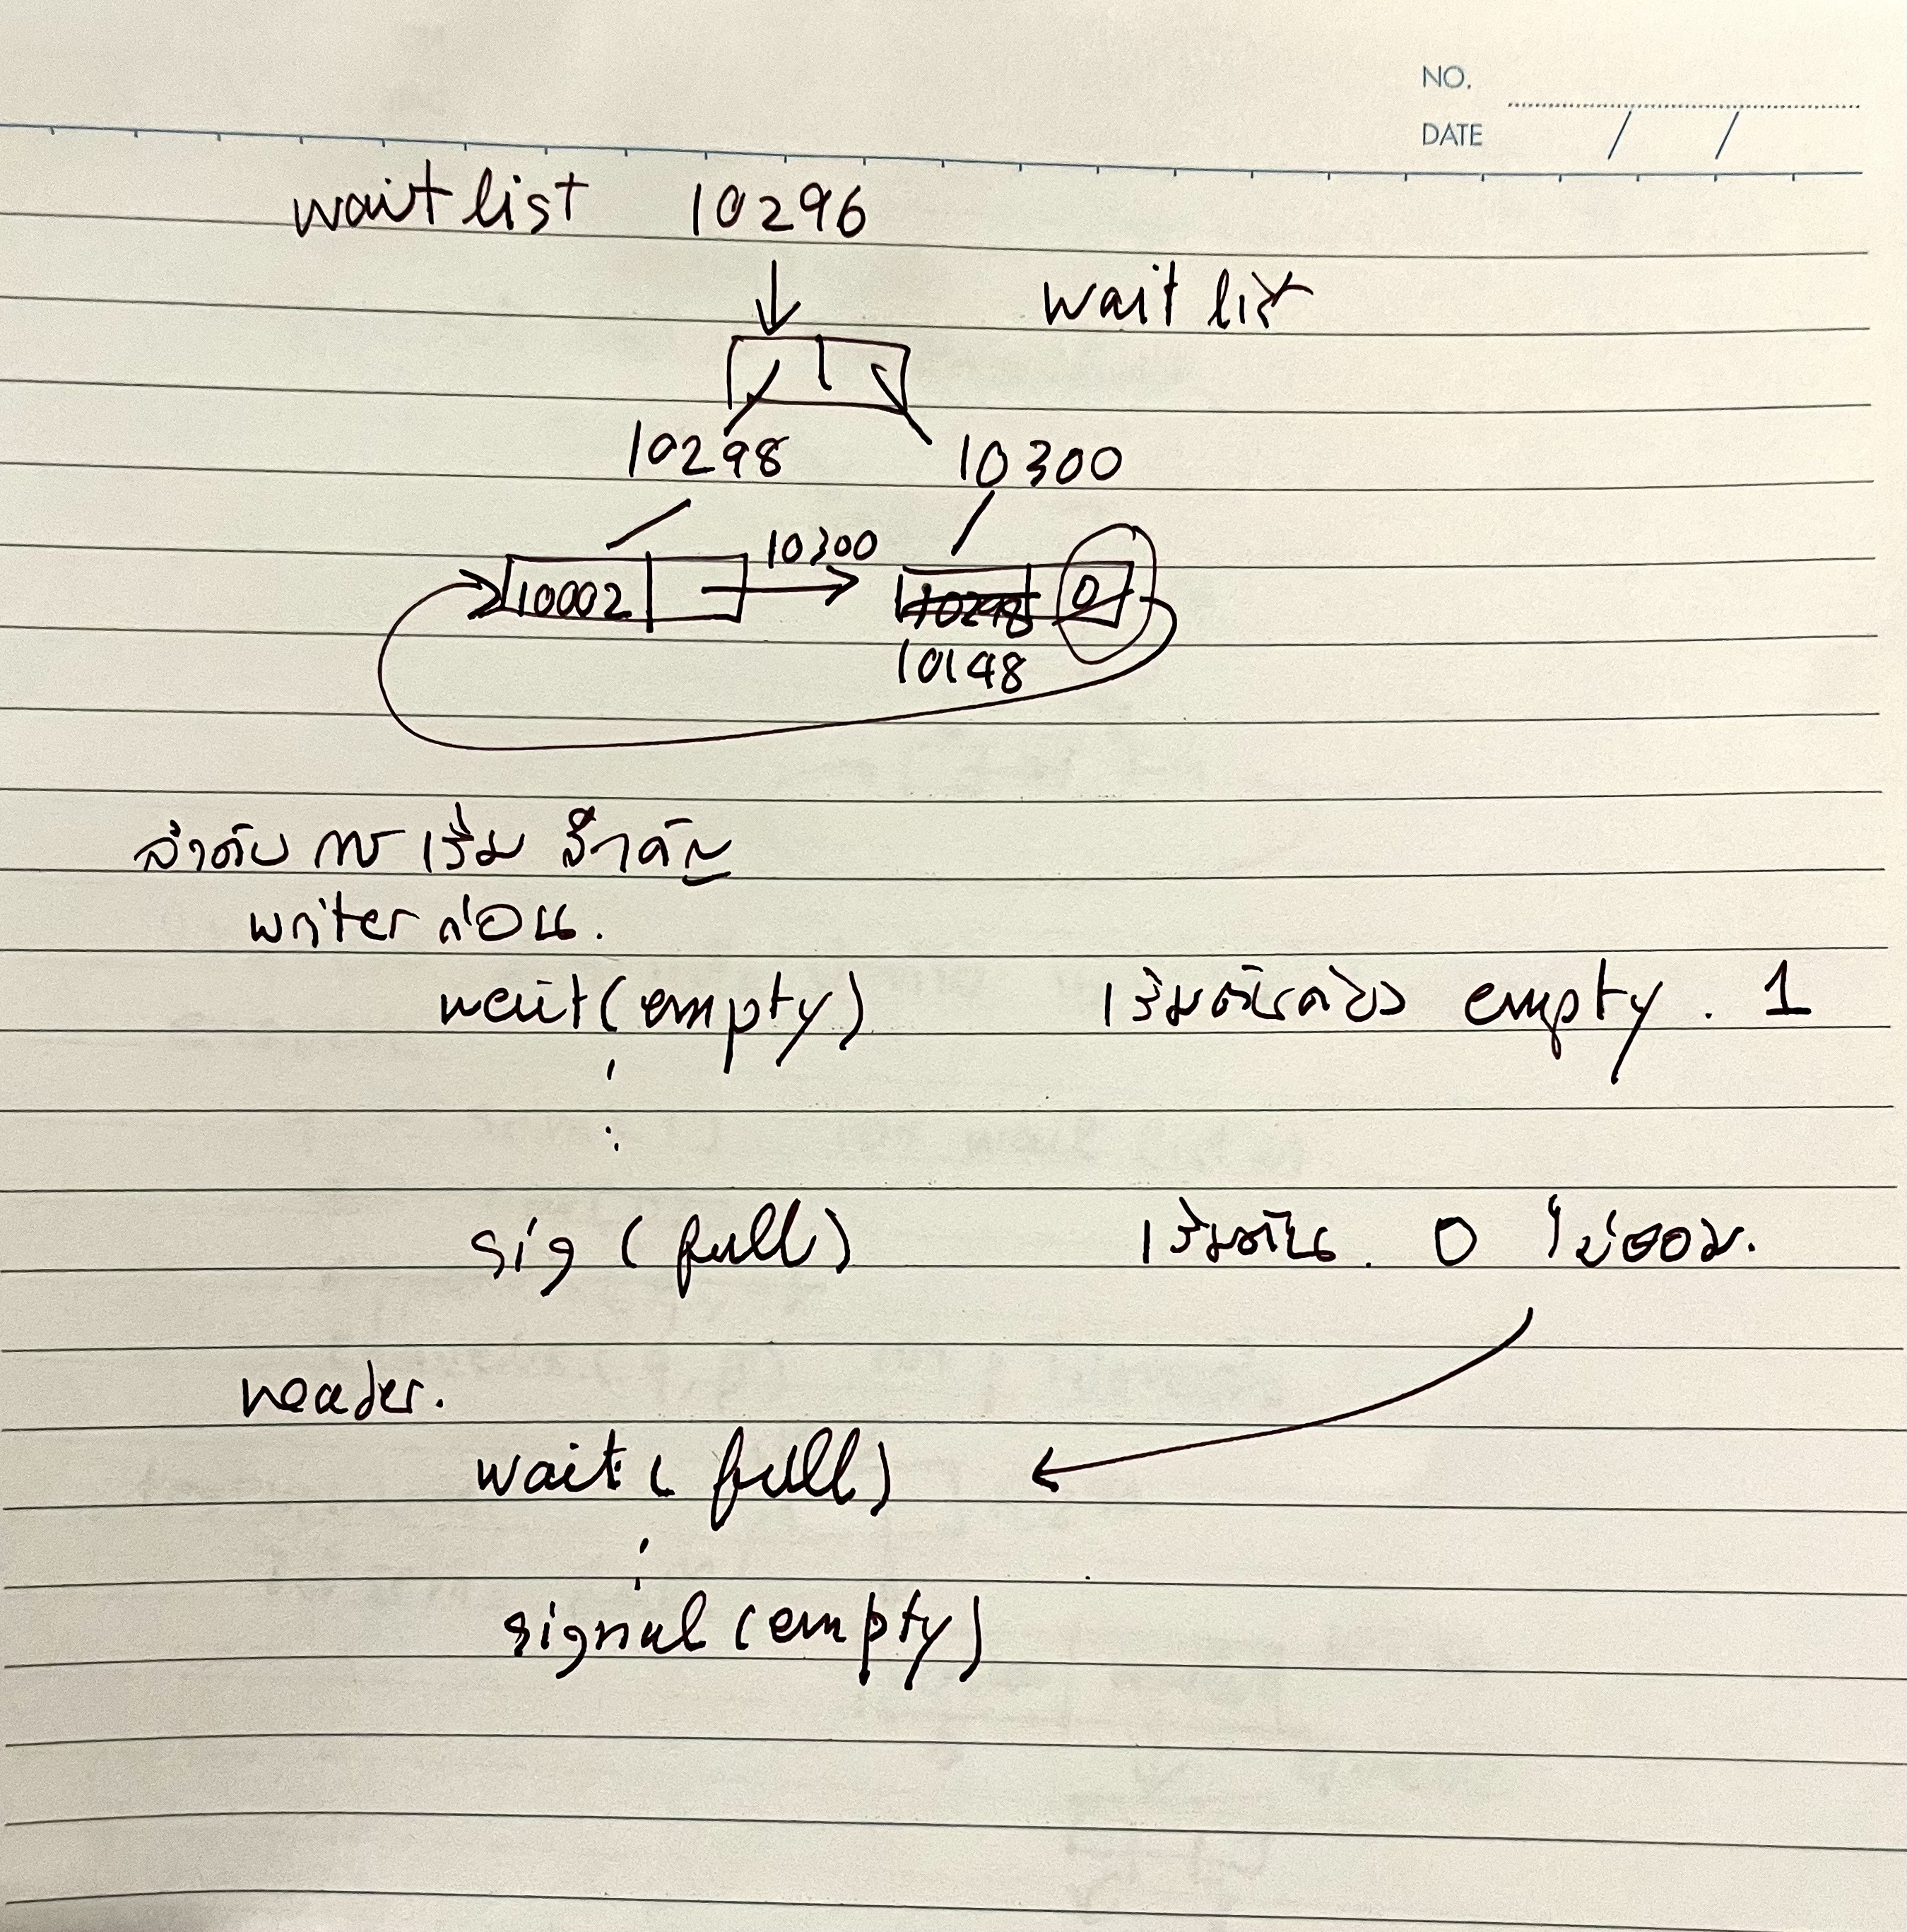 NO.
DATE / /
wait list 10296
wait list
10298 10300
10002 10300 10298 0
10148
ลำดับ การ เริ่ม สำคัญ
writer ก่อน.
wait(empty) เริ่มต้นของ empty. 1
sig (full) เริ่มต้น. 0 ไม่ยอม.
reader.
wait (full)
signal (empty)